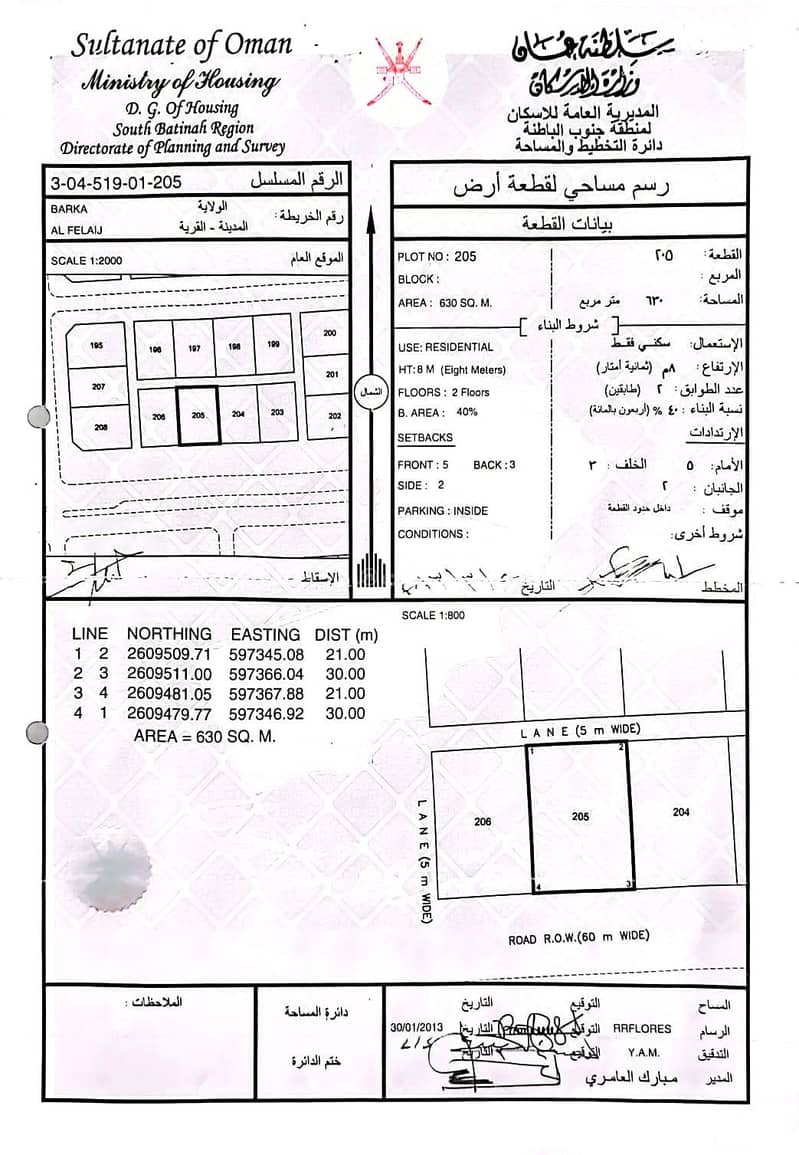 Sultanate of Oman
Ministry of Housing
D. G. Of Housing
South Batinah Region
Directorate of Planning and Survey
سلطنة عمان
وزارة الإسكان
المديرية العامة للاسكان
لمنطقة جنوب الباطنة
دائرة التخطيط والمساحة
3-04-519-01-205 الرقم المسلسل
BARKA الولاية
رقم الخريطة:
AL FELAIJ المدينة - القرية
SCALE 1:2000 الموقع العام
195 196 197 198 199 200
207 201
208 206 205 204 203 202
الإسقاط
الشمال
رسم مساحي لقطعة أرض
بيانات القطعة
PLOT NO : 205 القطعة: ٢٠٥
BLOCK : المربع :
AREA : 630 SQ. M. المساحة: ٦٣٠ متر مربع
شروط البناء
USE: RESIDENTIAL الإستعمال: سكني فقط
HT: 8 M (Eight Meters) الإرتفاع: ٨م (ثمانية أمتار)
FLOORS : 2 Floors عدد الطوابق: ٢ (طابقين)
B. AREA : 40% نسبة البناء : ٤٠ % (أربعون بالمائة)
SETBACKS الإرتدادات
FRONT : 5 BACK : 3 الأمام: ٥ الخلف : ٣
SIDE : 2 الجانبان : ٢
PARKING : INSIDE موقف : داخل حدود القطعة
CONDITIONS : شروط أخرى:
المخطط التاريخ
SCALE 1:800
LINE NORTHING EASTING DIST (m)
1 2 2609509.71 597345.08 21.00
2 3 2609511.00 597366.04 30.00
3 4 2609481.05 597367.88 21.00
4 1 2609479.77 597346.92 30.00
AREA = 630 SQ. M.
LANE (5 m WIDE)
1 2
206 205 204
4 3
LANE (5 m WIDE)
ROAD R.O.W.(60 m WIDE)
الملاحظات :
دائرة المساحة
ختم الدائرة
المساح التوقيع التاريخ
الرسام RRFLORES التوقيع التاريخ 30/01/2013
التدقيق Y.A.M. التوقيع التاريخ
المدير مبارك العامري